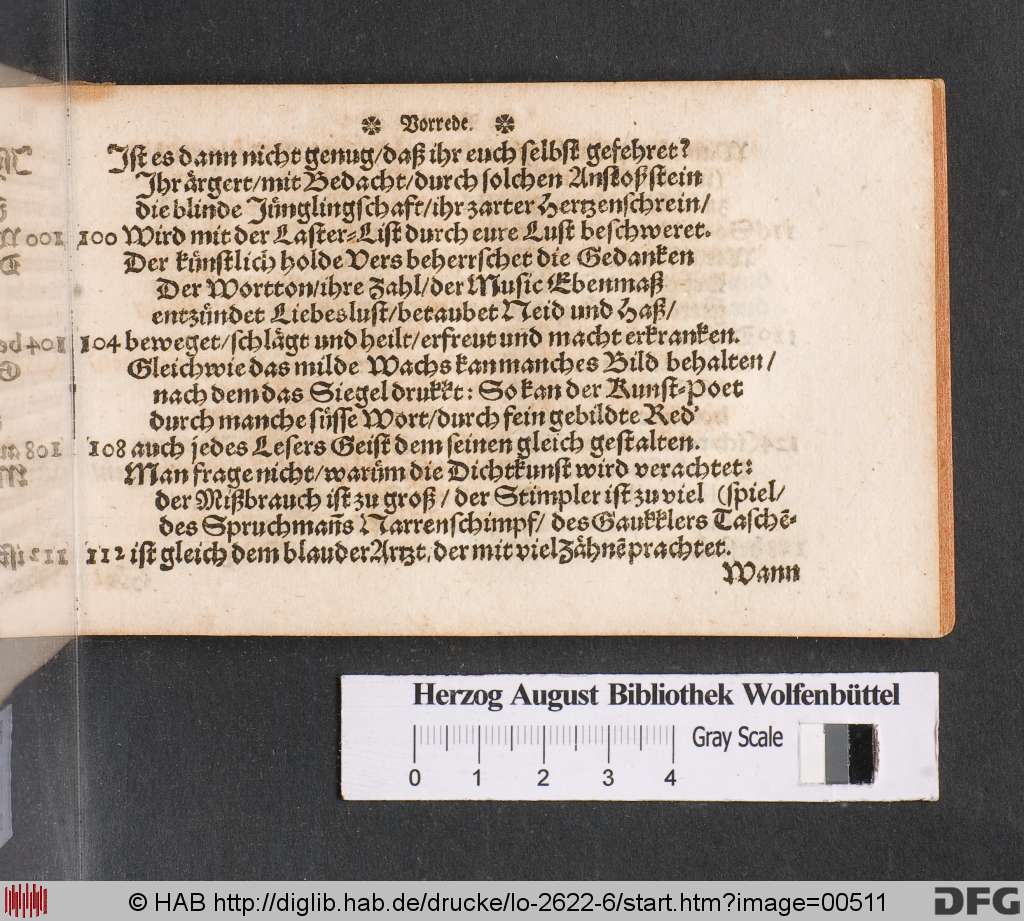 Vorrede.
Ist es dann nicht genug/daß ihr euch selbst gefehret?
Ihr årgert/mit Bedacht/durch solchen Anstoßstein
die blinde Jünglingschaft/ihr zarter Hertzenschrein/
100 Wird mit der Laster-List durch eure Lust beschweret.
Der künstlich holde Vers beherrschet die Gedanken
Der Wortton/ihre Zahl/der Music Ebenmaß
entzündet Liebeslust/betaubet Neid und Haß/
104 beweget/schlågt und heilt/erfreut und macht erkranken.
Gleichwie das milde Wachs kan manches Bild behalten/
nach dem das Siegel drukkt: So kan der Kunst-Poet
durch manche süsse Wort/durch fein gebildte Red'
108 auch jedes Lesers Geist dem seinen gleich gestalten.
Man frage nicht/warüm die Dichtkunst wird verachtet:
der Mißbrauch ist zu groß/ der Stimpler ist zu viel (spiel/
des Spruchmañs Narrenschimpf/ des Gaukklers Taschẽ-
112 ist gleich dem blauder Artzt, der mit viel Zåhnẽ prachtet.
Wann
Herzog August Bibliothek Wolfenbüttel
0 1 2 3 4 Gray Scale
© HAB http://diglib.hab.de/drucke/lo-2622-6/start.htm?image=00511
DFG